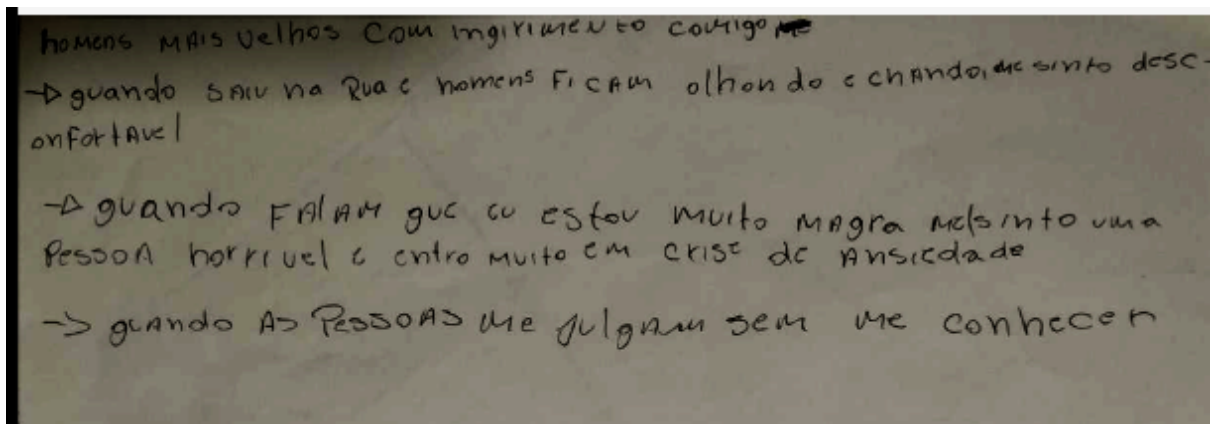 homens mais velhos com ingirimento comigo
→ quando saiu na Rua e homens ficam olhando e chando, me sinto desc-
onfortavel
→ quando falam que eu estou muito magra me sinto uma
pessoa horrivel e entro muito em crise de ansiedade
→ quando as pessoas me julgam sem me conhecer